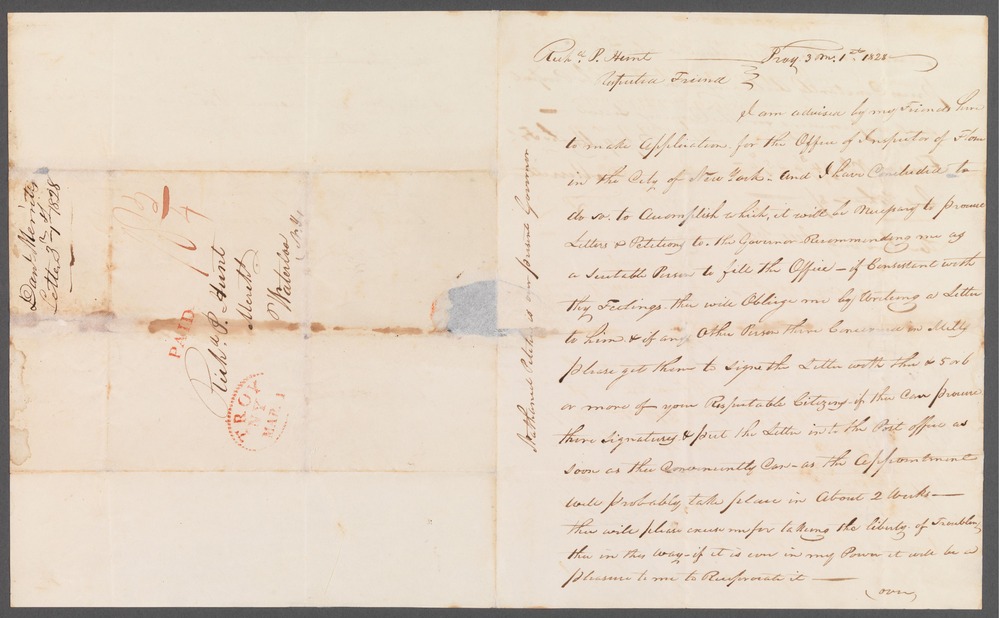 Richd. P. Hunt Troy 3 m. 1st 1828
Respected Friend
I am advised by my Friends here
to make application for the Office of Inspector of Flour
in the City of New York - and I have Concluded to
do so. to Acomplish which, it will be Necessary to procure
Letters & Petitions to the Governor Recommending me as
a Suitable Person to fill the Office - if Consistent with
thy Feelings thee will Oblige me by Writing a Letter
to him & if any Other Person there Concerned in Mills
please get them to Signe the Letter with thee & 5 or 6
or more of your Respectable Citizens - if thee Can procure
there Signatures & put the Letter in to the Post office as
soon as thee Conveniently Can - as the Appointment
will probably take place in About 2 Weeks -
thee will please excuse me for takeing the liberty of Troubling
thee in this way - if it is ever in my Power it will be a
pleasure to me to Reciprocate it -
(over)
Nathaniel Pitcher is our present Governor
Danl. Merritts
Letter 3rd 1st 1828
PAID
Richd. P. Hunt
Mercht
Waterloo
TROY
N.Y.
MAR 1